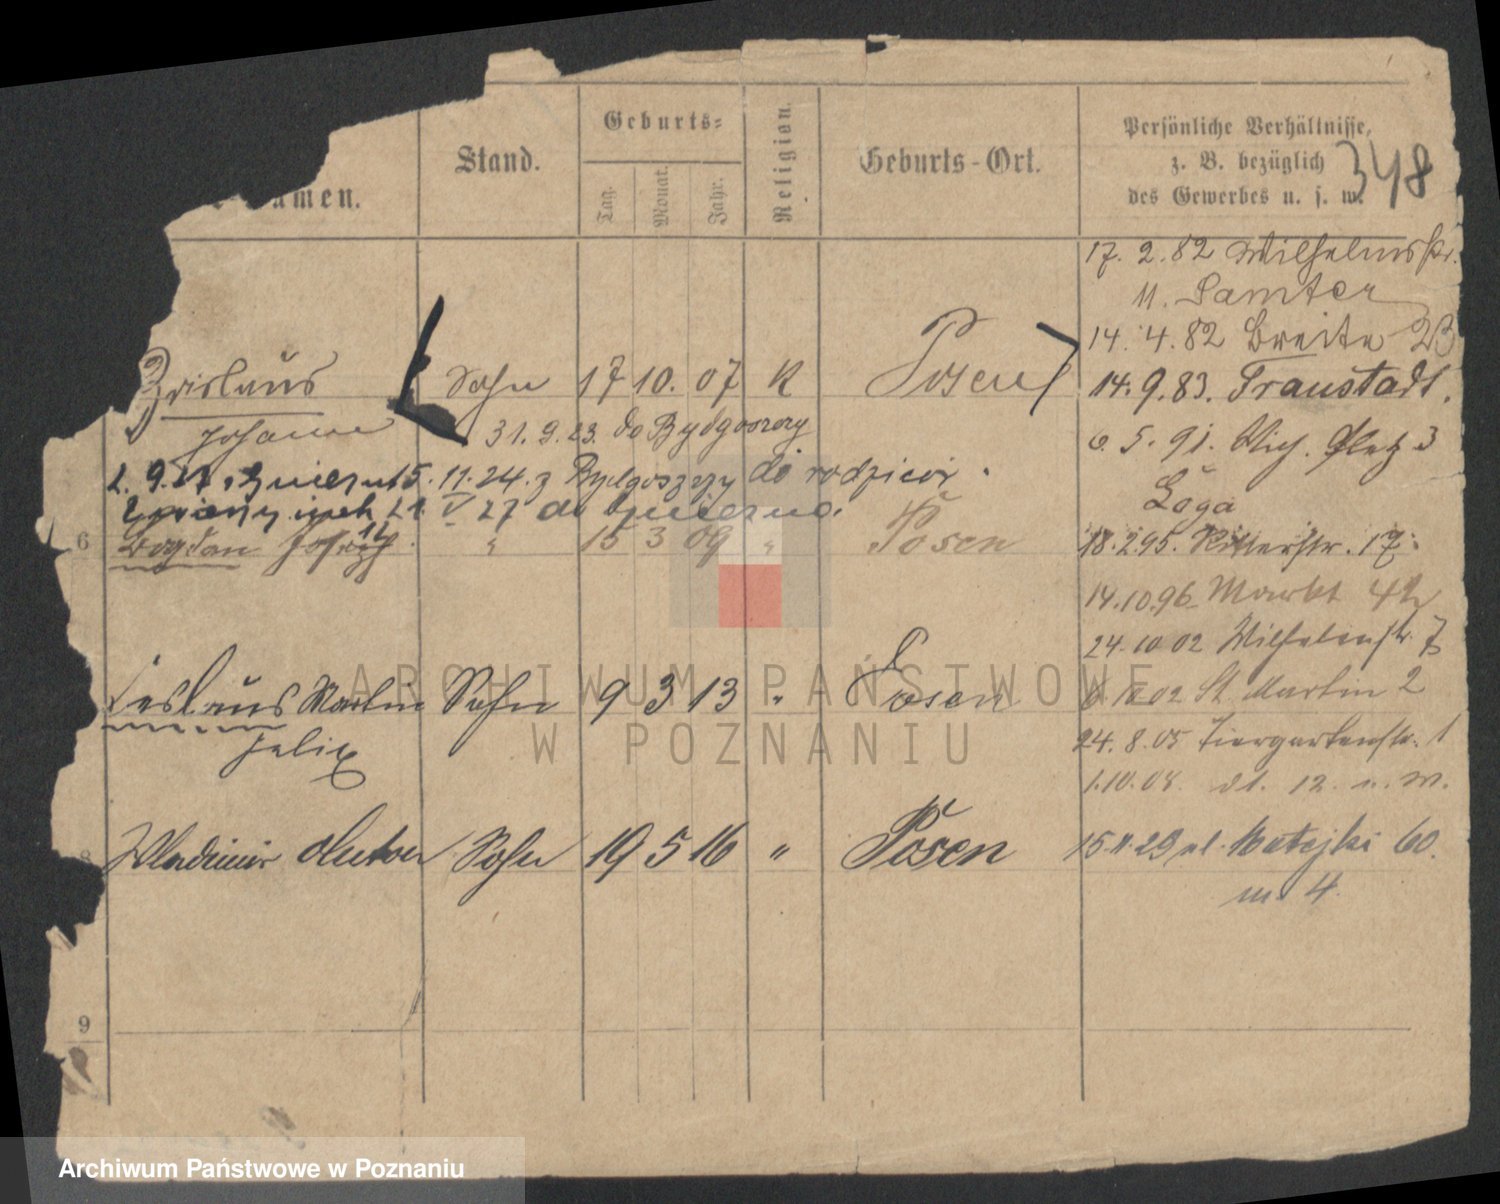 Namen.
Stand.
Geburts-
Tag.
Monat.
Jahr.
Religion.
Geburts-Ort.
Persönliche Verhältnisse,
z. B. bezüglich
des Gewerbes u. s. w.
348
Zdislaus
Johann
Sohn 17 10. 07 K Posen
31. 9. 23. do Bydgoszczy
15. 11. 24. z Bydgoszczy do rodziców.
27 do Gniezna.
6
Bogdan Joseph
" 15 3 09 " Posen
Leslaus Martin Sohn 9 3 13 " Posen
Felix
8
Wladimir Anton Sohn 19 5 16 " Posen
9
17. 2. 82 Wilhelmsstr.
11. Samter
14. 4. 82 Breite 23
14. 9. 83. Fraustadt.
6. 5. 91. 3
18. 2. 95. Ritterstr. 17.
14. 10. 96 Markt
24. 10. 02 Wilhelmstr. 7
02 St. Martin 2
24. 8. 05 Tiergartenstr. 1
1. 10. 08. dt. 12. n. W.
15. 11. 29 ul. Matejki 60.
m 4.
ARCHIWUM PAŃSTWOWE
W POZNANIU
Archiwum Państwowe w Poznaniu